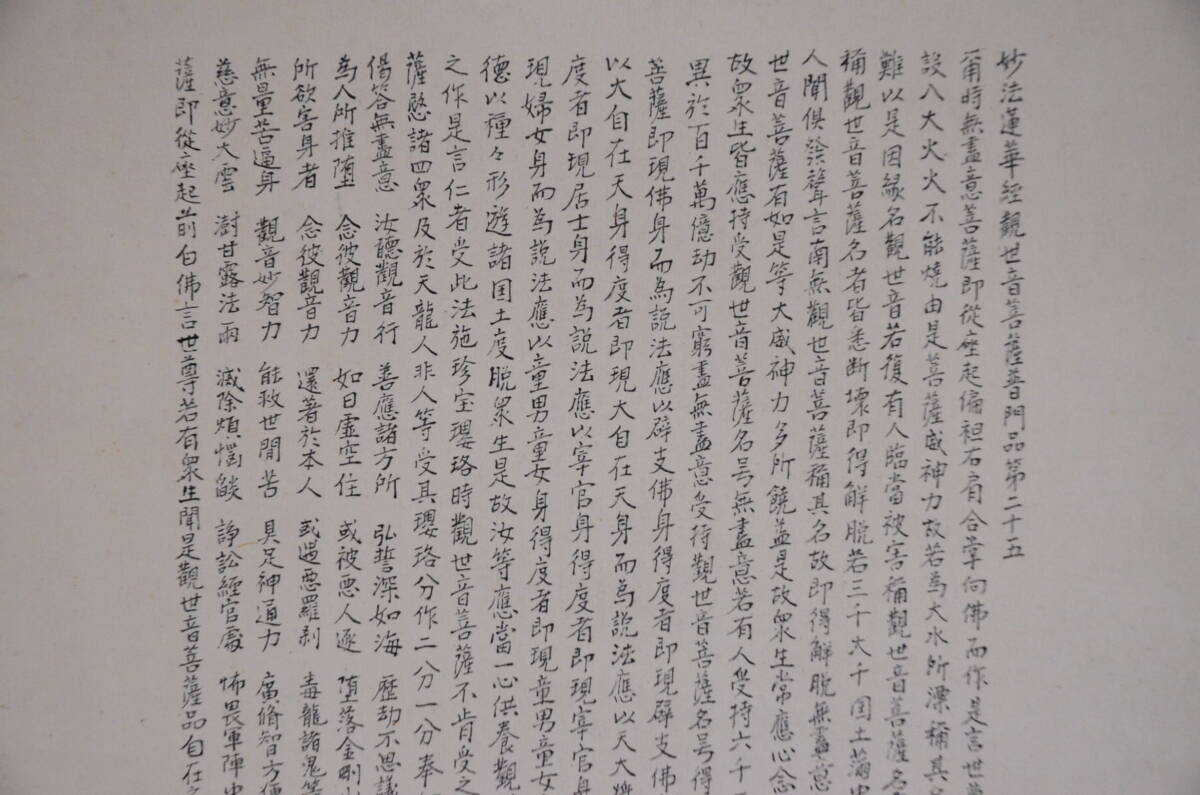 妙法蓮華經觀世音菩薩普門品第二十五
爾時無盡意菩薩即從座起偏袒右肩合掌向佛而作是言世尊
設入大火火不能燒由是菩薩威神力故若為大水所漂稱其名
難以是因緣名觀世音若復有人臨當被害稱觀世音菩薩名
稱觀世音菩薩名者皆悉斷壞即得解脫若三千大千国土滿中
人聞俱發聲言南無觀世音菩薩稱其名故即得解脫無盡意
世音菩薩有如是等大威神力多所饒益是故眾生常應心念
故眾生皆應持受觀世音菩薩名号無盡意若有人受持六十
異於百千萬億劫不可窮盡無盡意受持觀世音菩薩名号得
菩薩即現佛身而為說法應以辟支佛身得度者即現辟支佛
以大自在天身得度者即現大自在天身而為說法應以天大將
度者即現居士身而為說法應以宰官身得度者即現宰官身
現婦女身而為說法應以童男童女身得度者即現童男童女
德以種々形遊諸国土度脫眾生是故汝等應當一心供養觀
之作是言仁者受此法施珍宝瓔珞時觀世音菩薩不肯受之
薩愍諸四眾及於天龍人非人等受其瓔珞分作二分一分奉
偈答無盡意 汝聽觀音行 善應諸方所 弘誓深如海 歷劫不思議
為人所推堕 念彼觀音力 如日虛空住 或被悪人逐 堕落金剛
所欲害身者 念彼觀音力 還著於本人 或遇悪羅刹 毒龍諸鬼等
無量苦逼身 觀音妙智力 能救世間苦 具足神通力 廣脩智方便
慈意妙大雲 澍甘露法雨 滅除煩惱燄 諍訟經官處 怖畏軍陣中
薩即從座起前白佛言世尊若有眾生聞是觀世音菩薩品自在之